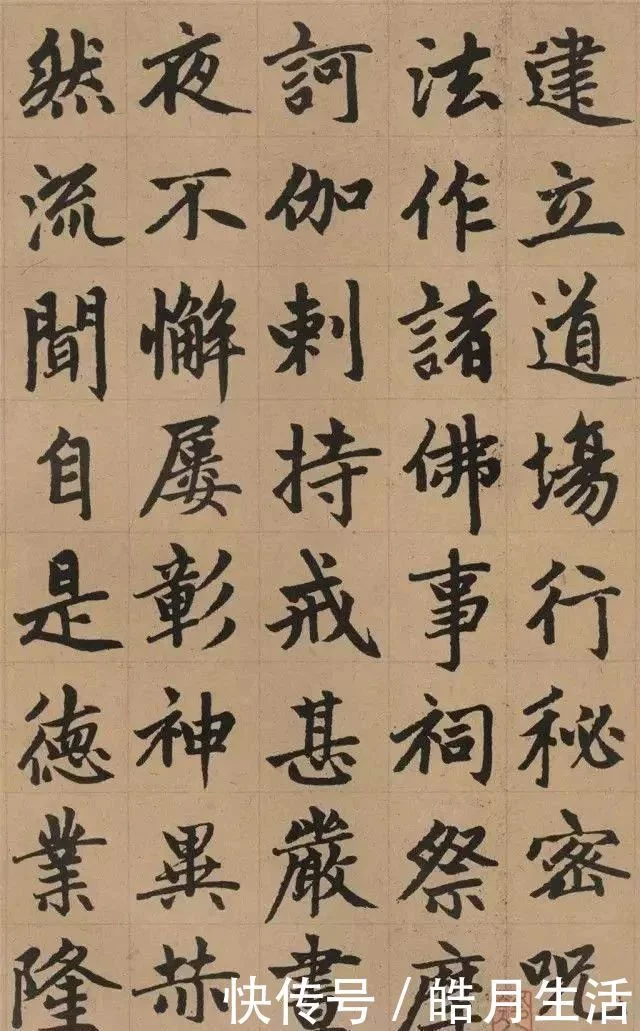 建立道場行秘密呪
法作諸佛事祠祭摩
訶伽剌持戒甚嚴晝
夜不懈屢彰神異赫
然流聞自是德業隆
快传号／皓月生活